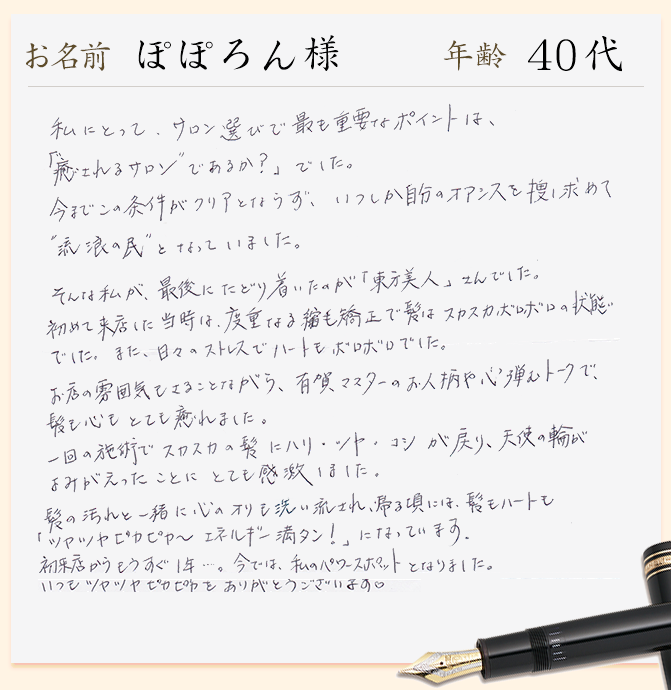 お名前 ぽぽろん様 年齢 40代
私にとって、サロン選びで最も重要なポイントは、
「"癒されるサロン"であるか？」でした。
今までこの条件がクリアとならず、いつしか自分のオアシスを捜し求めて
"流浪の民"となっていました。
そんな私が、最後にたどり着いたのが「東方美人」さんでした。
初めて来店した当時は、度重なる縮毛矯正で髪はスカスカボロボロの状態
でした。また、日々のストレスでハートもボロボロでした。
お店の雰囲気もさることながら、有賀マスターのお人柄や心弾むトークで、
髪も心もとても癒れました。
一回の施術でスカスカの髪にハリ・ツヤ・コシが戻り、天使の輪が
よみがえったことにとても感激しました。
髪の汚れと一緒に心のオリも洗い流され、帰る頃には、髪もハートも
「ツヤツヤピカピカ〜エネルギー満タン！」になっています。
初来店からもうすぐ1年…。今では、私のパワースポットとなりました。
いつもツヤツヤピカピカをありがとうございます♡